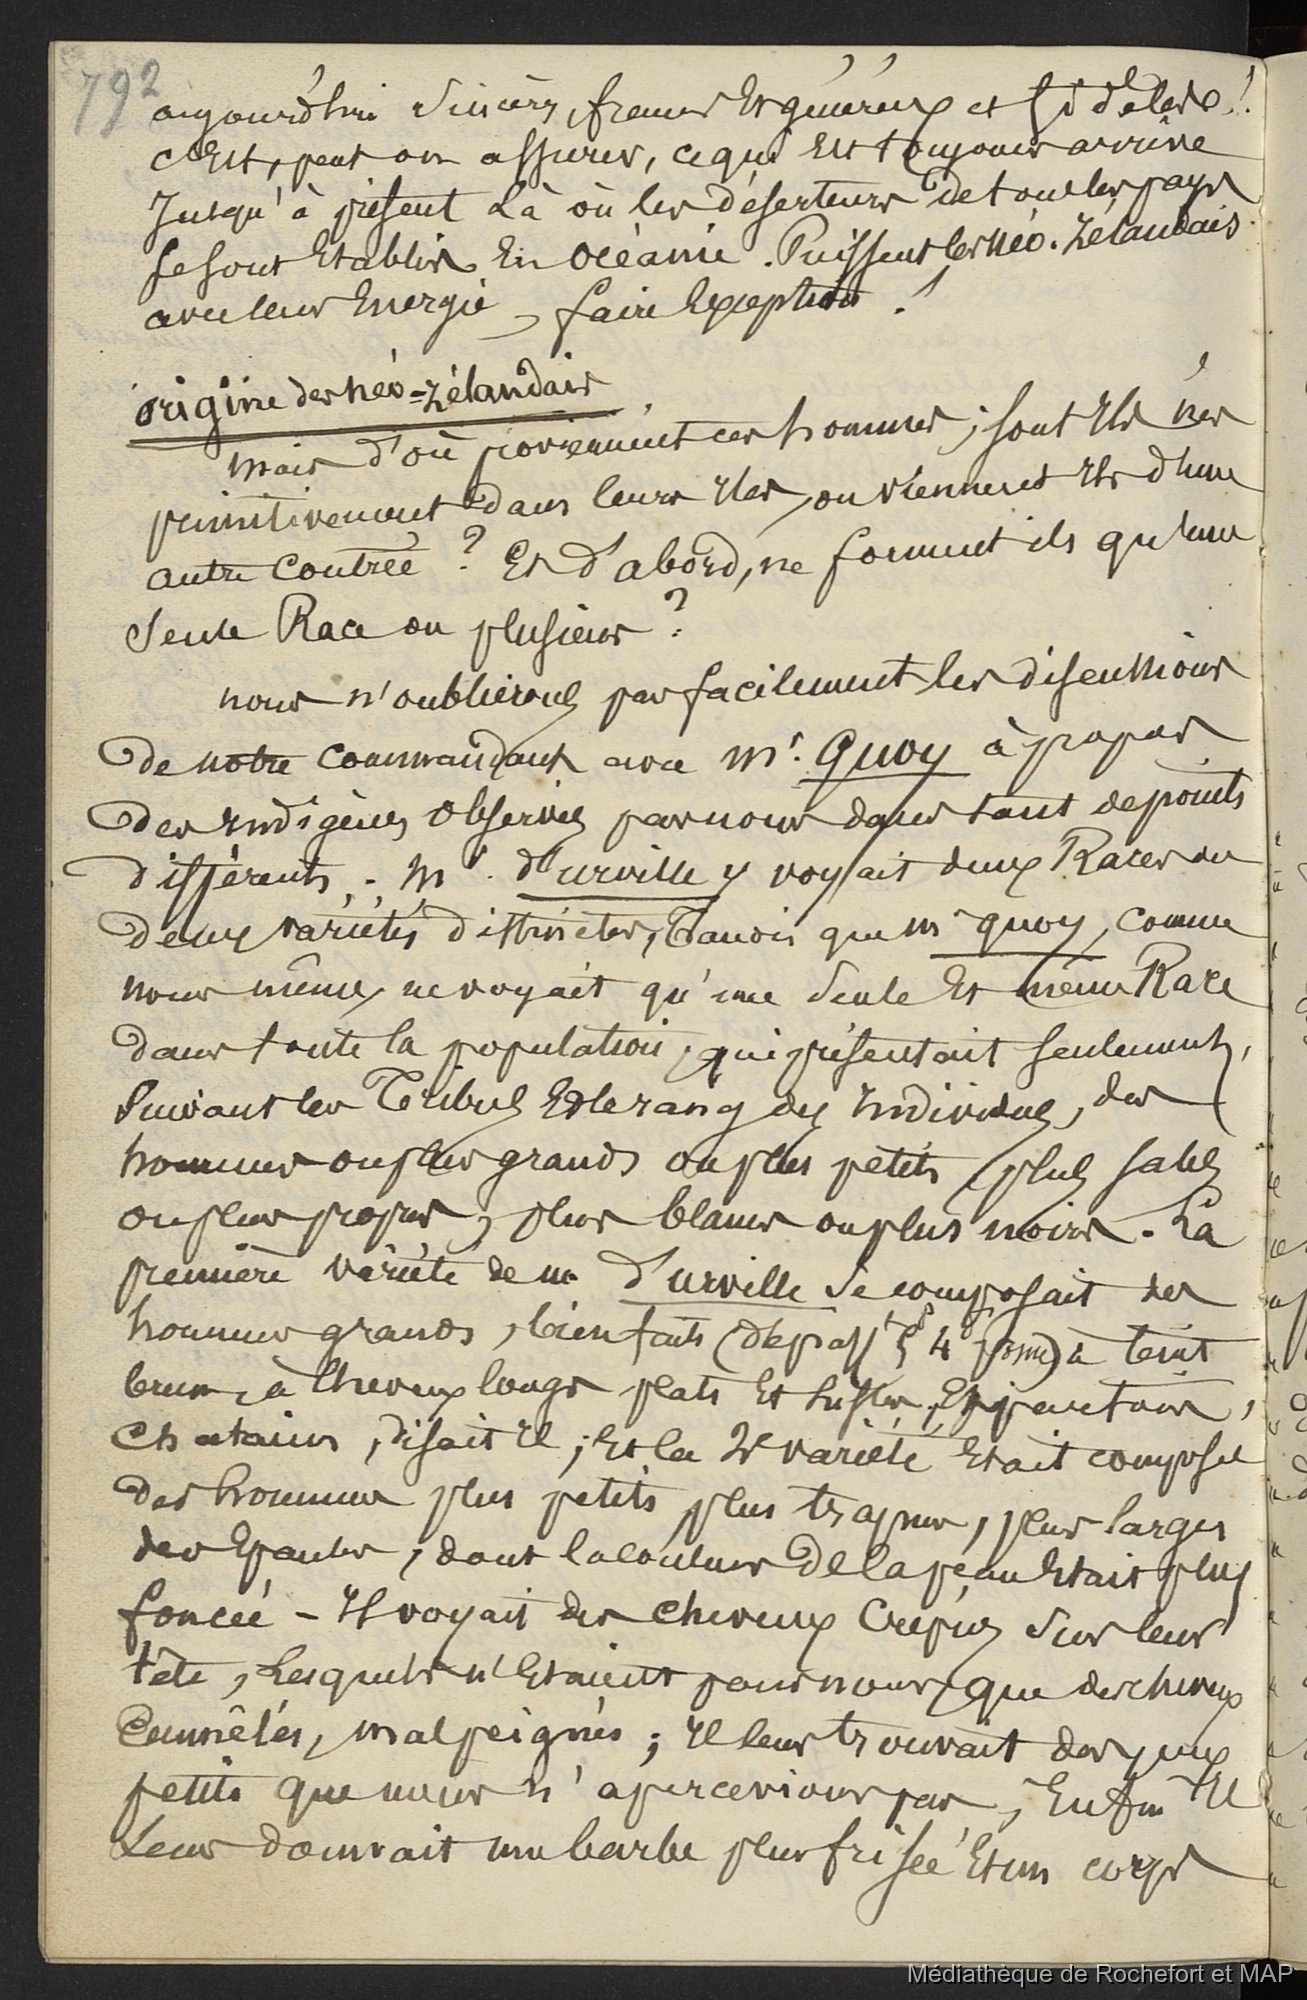 792
aujourd'hui sincères, francs Et généreux et fidèles !
C'Est, peut on assurer, ce qui Est toujours arrivé
Jusqu'à présent Là où les déserteurs de tous les pays
se sont Etablis En Océanie. Puissent les Néo-Zélandais
avec leur Energie, faire Exception !
origine des néo=Zélandais
mais d'où proviennent ces hommes ; sont Ils nés
primitivement dans leurs Iles, ou viennent Ils d'une
autre Contrée ? Et d'abord, ne forment ils qu'une
seule Race ou plusieurs ?
nous n'oublierons pas facilement les discussions
de notre commandant avec Mr. Quoy à propos
des Indigènes observés par nous dans tant de points
différents. Mr. d'urville y voyait deux Races ou
deux variétés distinctes, Tandis que mr quoy, comme
nous même, ne voyait qu'une seule Et même Race
dans toute la population, qui présentait seulement,
suivant les Tribus Et le rang des Individus, des
hommes ou plus grands ou plus petits, plus sales
ou plus propres, plus blancs ou plus noirs. La
première variété de m. d'urville se composait des
hommes grands, bien faits (dépasst 5 pds 4 pouces) à teint
brun, à cheveux longs plats Et lisses, Et partois,
chatains, disait Il ; Et la 2e variété Etait composée
des hommes plus petits, plus trapus, plus larges
des Epaules, dont la couleur de la peau Etait plus
foncée - Il voyait des cheveux crépus sur leur
tête, Lesquels n'Etaient pour nous, que des cheveux
Emmêlés, mal peignés ; Il leur trouvait des yeux
petits que nous n'apercevions pas, Enfin Il
Leur donnait une barbe plus frisée Et un corps
Médiathèque de Rochefort et MAP